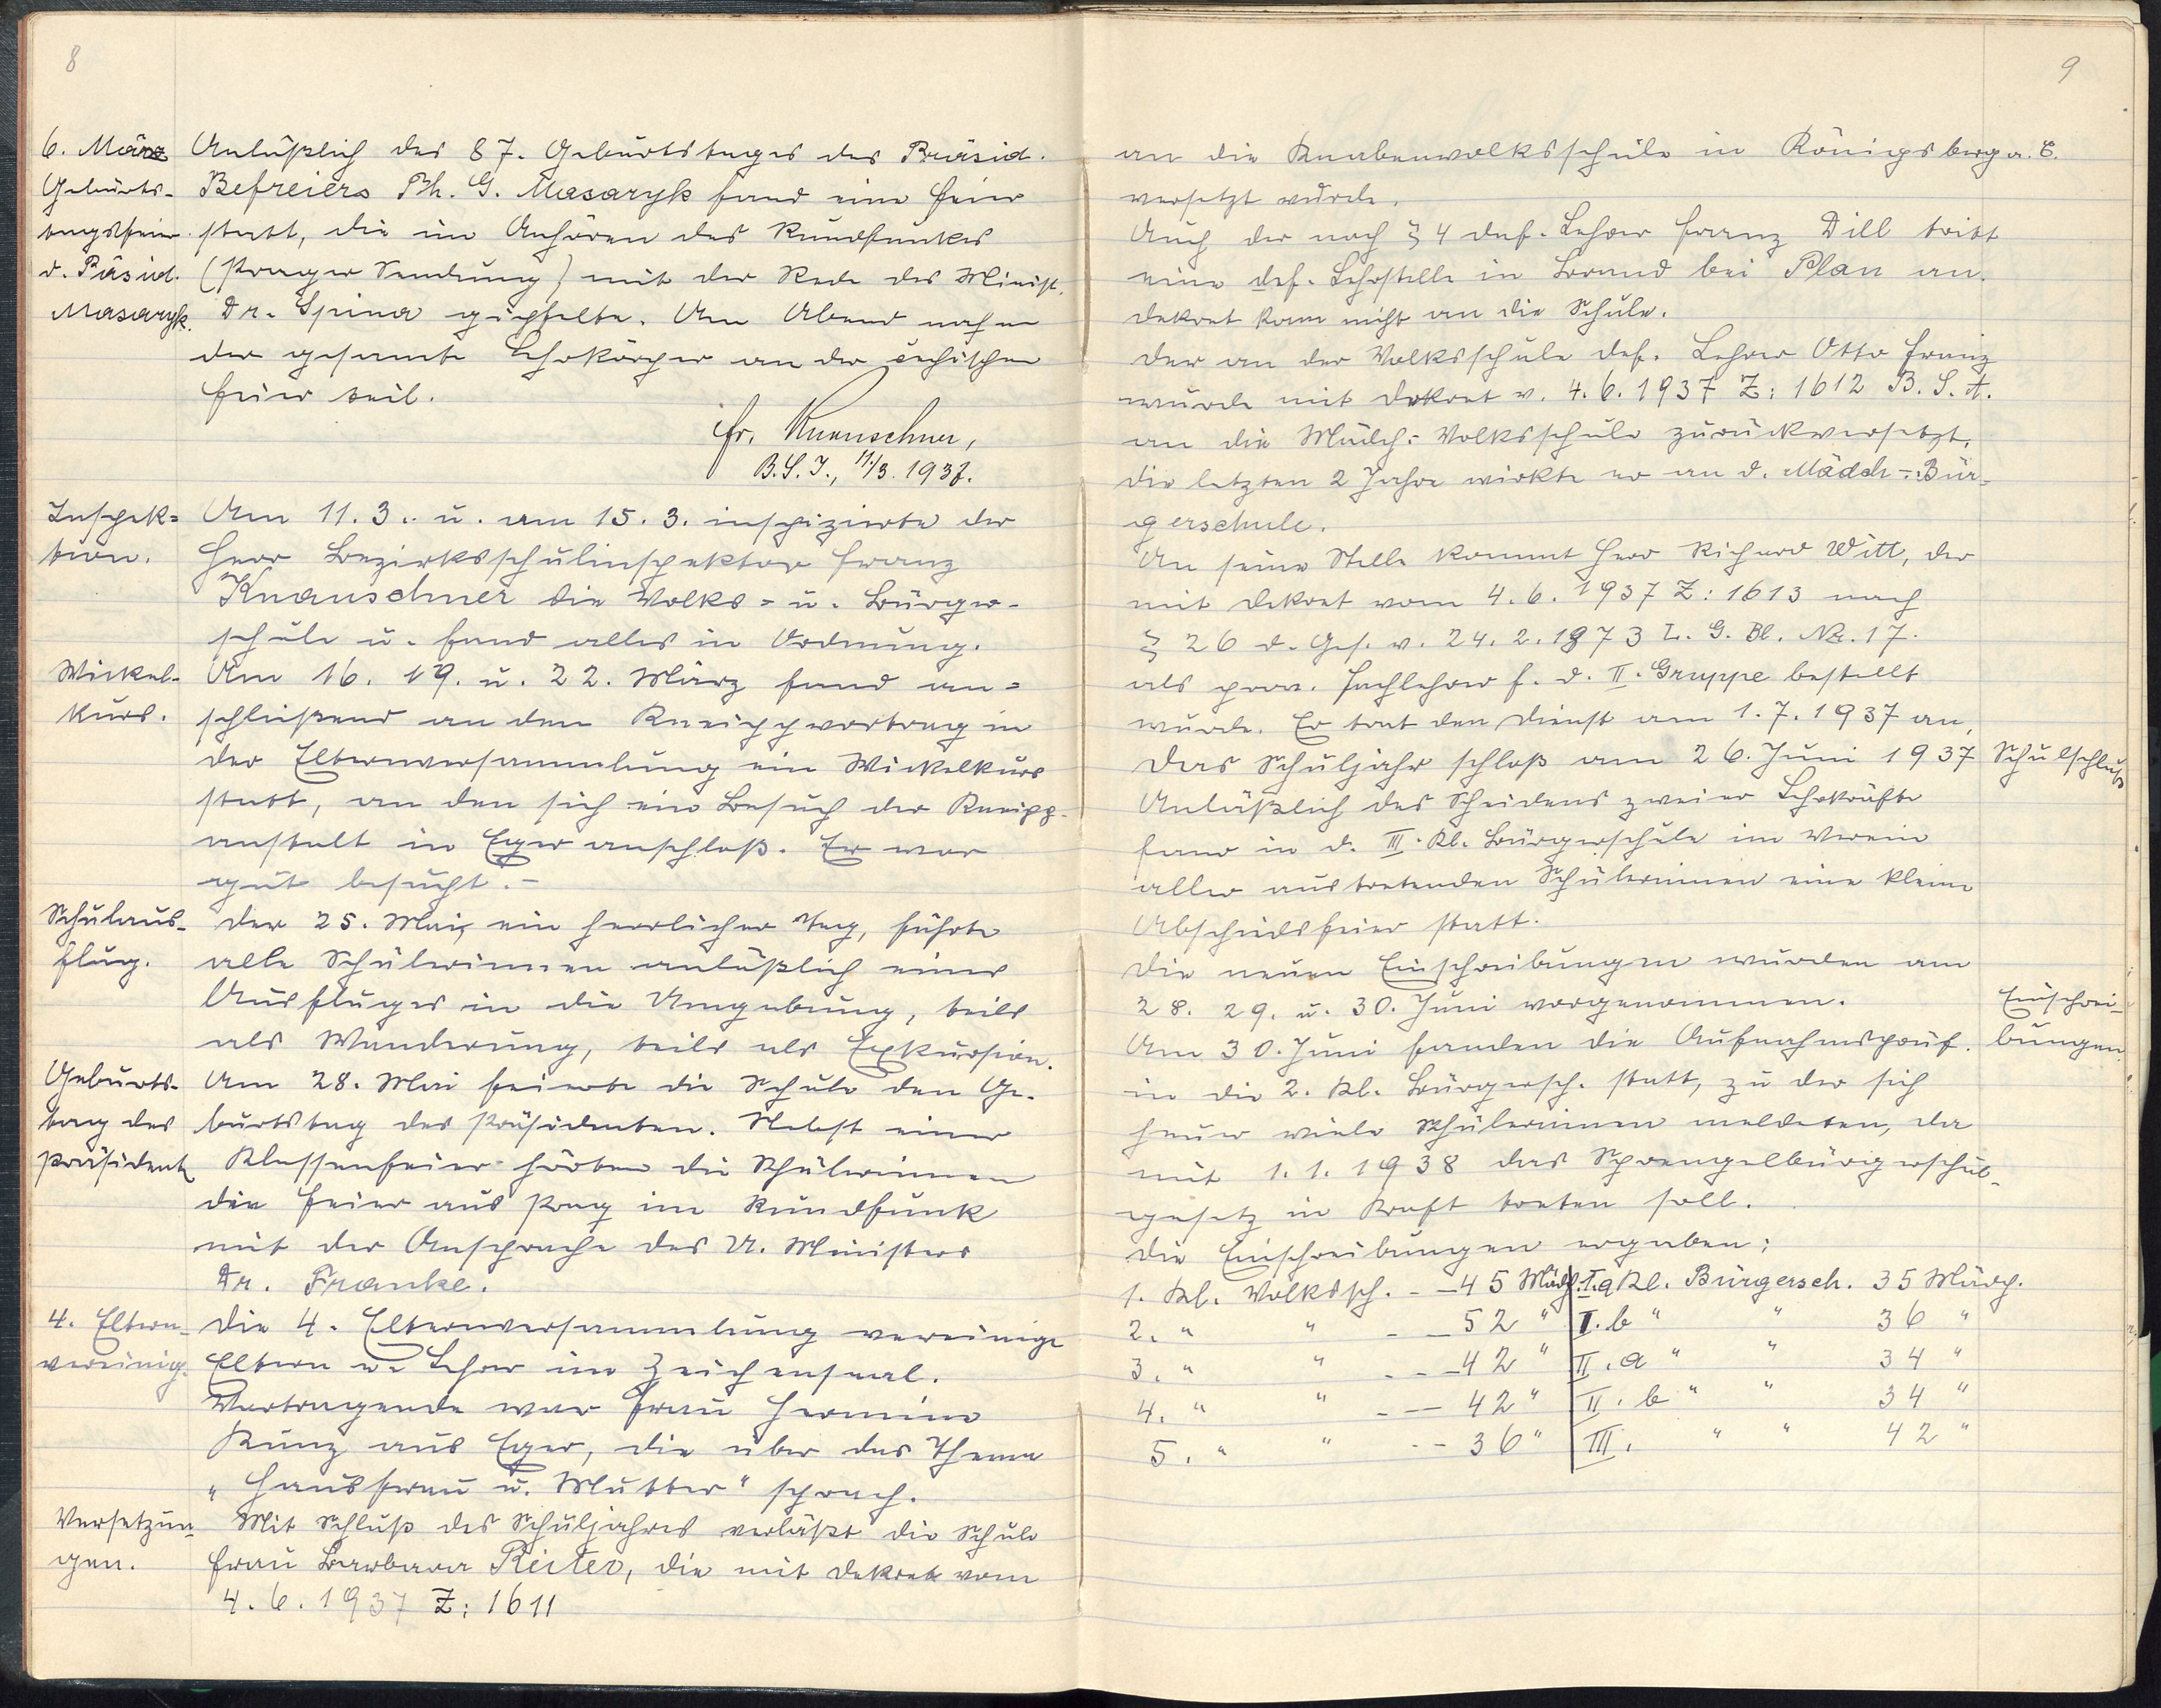 8
6. März
Geburts-
tagsfeier
d. Präsid.
Masaryk.
Anläßlich des 87. Geburtstages des Präsid.
Befreiers Th. G. Masaryk fand eine Feier
statt, die im Anhören des Rundfunkes
(Prager Sendung) mit der Rede des Minist.
Dr. Spina gipfelte. Am Abend nahm
der gesamte Lehrkörper an der čechischen
Feier teil.
Fr. Knauschner,
B.S.I., 11./3. 1937.
Inspek=
tion.
Am 11. 3. u. am 15. 3. inspizierte der
Herr Bezirksschulinspektor Franz
Knauschner die Volks= u. Bürger-
schule u. fand alles in Ordnung.
Wickel-
kurs.
Am 16. 19. u. 22. März fand an=
schließend an den Kneippvortrag in
der Elternversammlung ein Wickelkurs
statt, an den sich ein Besuch der Kneipp-
anstalt in Eger anschloß. Er war
gut besucht. -
Schulaus-
flug.
Der 25. Mai, ein herrlicher Tag, führte
alle Schülerinnen anläßlich eines
Ausfluges in die Umgebung, teils
als Wanderung, teils als Exkursion.
Geburts-
tag des
Präsident
Am 28. Mai feierte die Schule den Ge-
burtstag des Präsidenten. Nebst einer
Klassenfeier hörten die Schülerinnen
die Feier aus Prag im Rundfunk
mit der Ansprache des U. Ministers
Dr. Franke.
4. Eltern-
vereinig.
Die 4. Elternversammlung vereinigte
Eltern u. Lehrer im Zeichensaal.
Vortragende war Frau Hermine
Kunz aus Eger, die über das Thema
"Hausfrau u. Mutter" sprach.
Versetzun-
gen.
Mit Schluß des Schuljahres verläßt die Schule
Frau Barbara Reiter, die mit Dekret vom
4. 6. 1937 Z: 1611
9
an die Knabenvolksschule in Königsberg a. E.
versetzt wurde.
Auch der nach § 4 def. Lehrer Franz Dill tritt
eine def. Lehrstelle in Brand bei Plan an.
Dekret kam nicht an die Schule.
Der an der Volksschule def. Lehrer Otto Franz
wurde mit Dekret v. 4. 6. 1937 Z: 1612 B. S. A.
an die Mädch.-Volksschule zurückversetzt.
Die letzten 2 Jahre wirkte er an d. Mädch.-Bür-
gerschule.
An seine Stelle kommt Herr Richard Witt, der
mit Dekret vom 4. 6. 1937 Z: 1613 nach
§ 26 d. Ges. v. 24. 2. 1873 L. G. Bl. No. 17.
als prov. Fachlehrer f. d. II. Gruppe bestellt
wurde. Er trat den Dienst am 1. 7. 1937 an.
Das Schuljahr schloß am 26. Juni 1937
Schulschluß
Anläßlich des Scheidens zweier Lehrkräfte
fand in d. III. Kl. Bürgerschule im Verein
aller austretenden Schülerinnen eine kleine
Abschiedsfeier statt.
Die neuen Einschreibungen wurden am
28. 29. u. 30. Juni vorgenommen.
Einschrei-
bungen
Am 30. Juni fanden die Aufnahmsprüf.
in die 2. Kl. Bürgersch. statt, zu der sich
heuer viele Schülerinnen meldeten, da
mit 1. 1. 1938 das Sprengelbürgerschul-
gesetz in Kraft treten soll.
Die Einschreibungen ergaben:
1. Kl. Volkssch. - - 45 Mädch. I. a Kl. Bürgersch. 35 Mädch.
2. " " - - 52 " I. b " " 36 "
3. " " - - - 42 " II. a " " 34 "
4. " " - - - 42 " II. b " " 34 "
5. " " - - 36 " III. " " 42 "